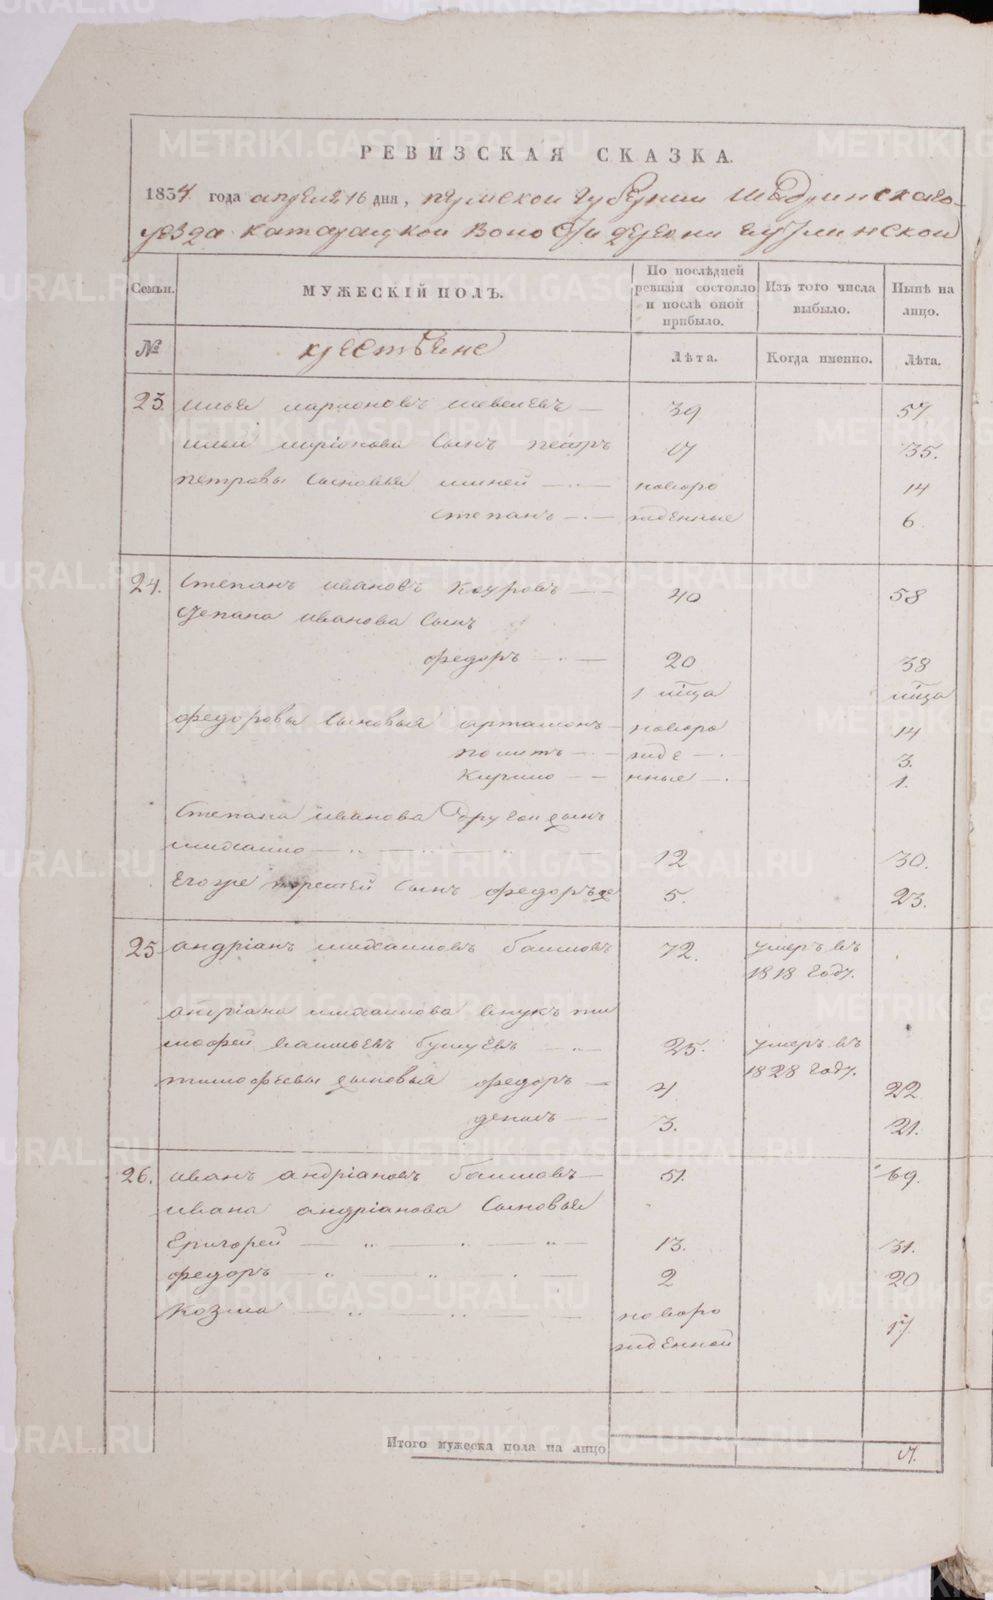 РЕВИЗСКАЯ СКАЗКА.
1834 года апреля 16 дня, пермской губернии шадринскаго
уезда катайцкой волости деревни
Семьи. МУЖЕСКІЙ ПОЛЪ. По послѣдней ревизіи состояло и послѣ оной прибыло. Изъ того числа выбыло. Нынѣ на лицо.
№ крестьяне Лѣта. Когда именно. Лѣта.
23. илья ларионовъ 39 57
ильи ларіонова сынъ петръ 17 35.
петровы сыновья новоро 14
степанъ жденные 6
24. степанъ ивановъ 40 58
степана иванова сынъ
федоръ 20 38
1 мсца мсца
федоровы сыновья артамонъ новоро 14
жде 3.
кирило нные 1.
Степана иванова другой сынъ
михаило 12 30.
Егоже третей сынъ федоръ 5. 23.
25 андріанъ михаиловъ 72. умеръ въ
1818 году.
андріана михаилова внукъ ти
мофей 25. умеръ въ
1828 году.
тимофеевы сыновья федоръ 4 22
денисъ 3. 21.
26. иванъ андріановъ 51. 69.
ивана андріанова сыновья
Григорей 13. 31.
федоръ 2 20
козма новоро
жденной 17.
Итого мужеска пола на лицо 17.
METRIKI.GASO-URAL.RU